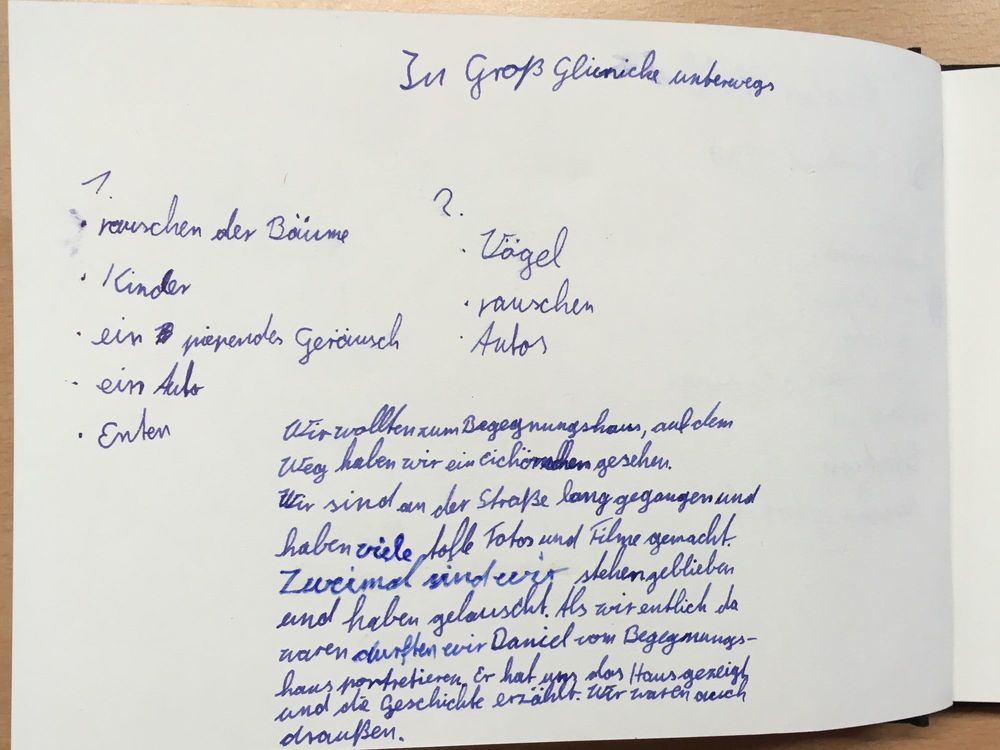 In Groß Glienicke unterwegs
1.
• rauschen der Bäume
• Kinder
• ein piependes Geräusch
• ein Auto
• Enten
2.
• Vögel
• rauschen
• Autos
Wir wollten zum Begegnungshaus, auf dem
Weg haben wir ein eichörnchen gesehen.
Wir sind an der Straße lang gegangen und
haben viele tolle Fotos und Filme gemacht.
Zweimal sind wir stehengeblieben
und haben gelauscht. Als wir entlich da
waren durften wir Daniel vom Begegnungs-
haus portretieren. Er hat uns das Haus gezeigt
und die Geschichte erzählt. Wir waren auch
draußen.